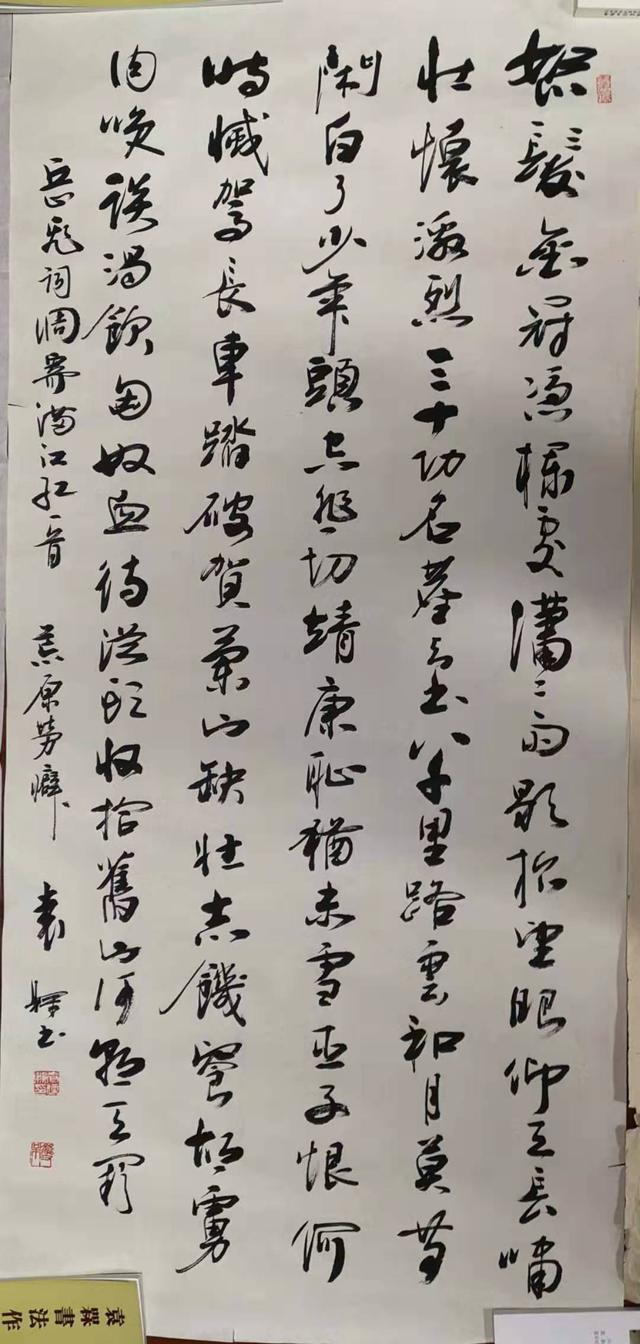 怒髮衝冠憑欄處瀟瀟雨歇抬望眼仰天長嘯
壯懷激烈三十功名塵与土八千里路雲和月莫等
閑白了少年頭空悲切靖康恥猶未雪臣子恨何
時憾駕長車踏破賀蘭山缺壯志饑餐胡虜
肉笑談渴飲匈奴血待從頭收拾舊山河朝天闕
岳飛詞調寄滿江紅一首 荒原勞癖 袁 書
袁 書法作